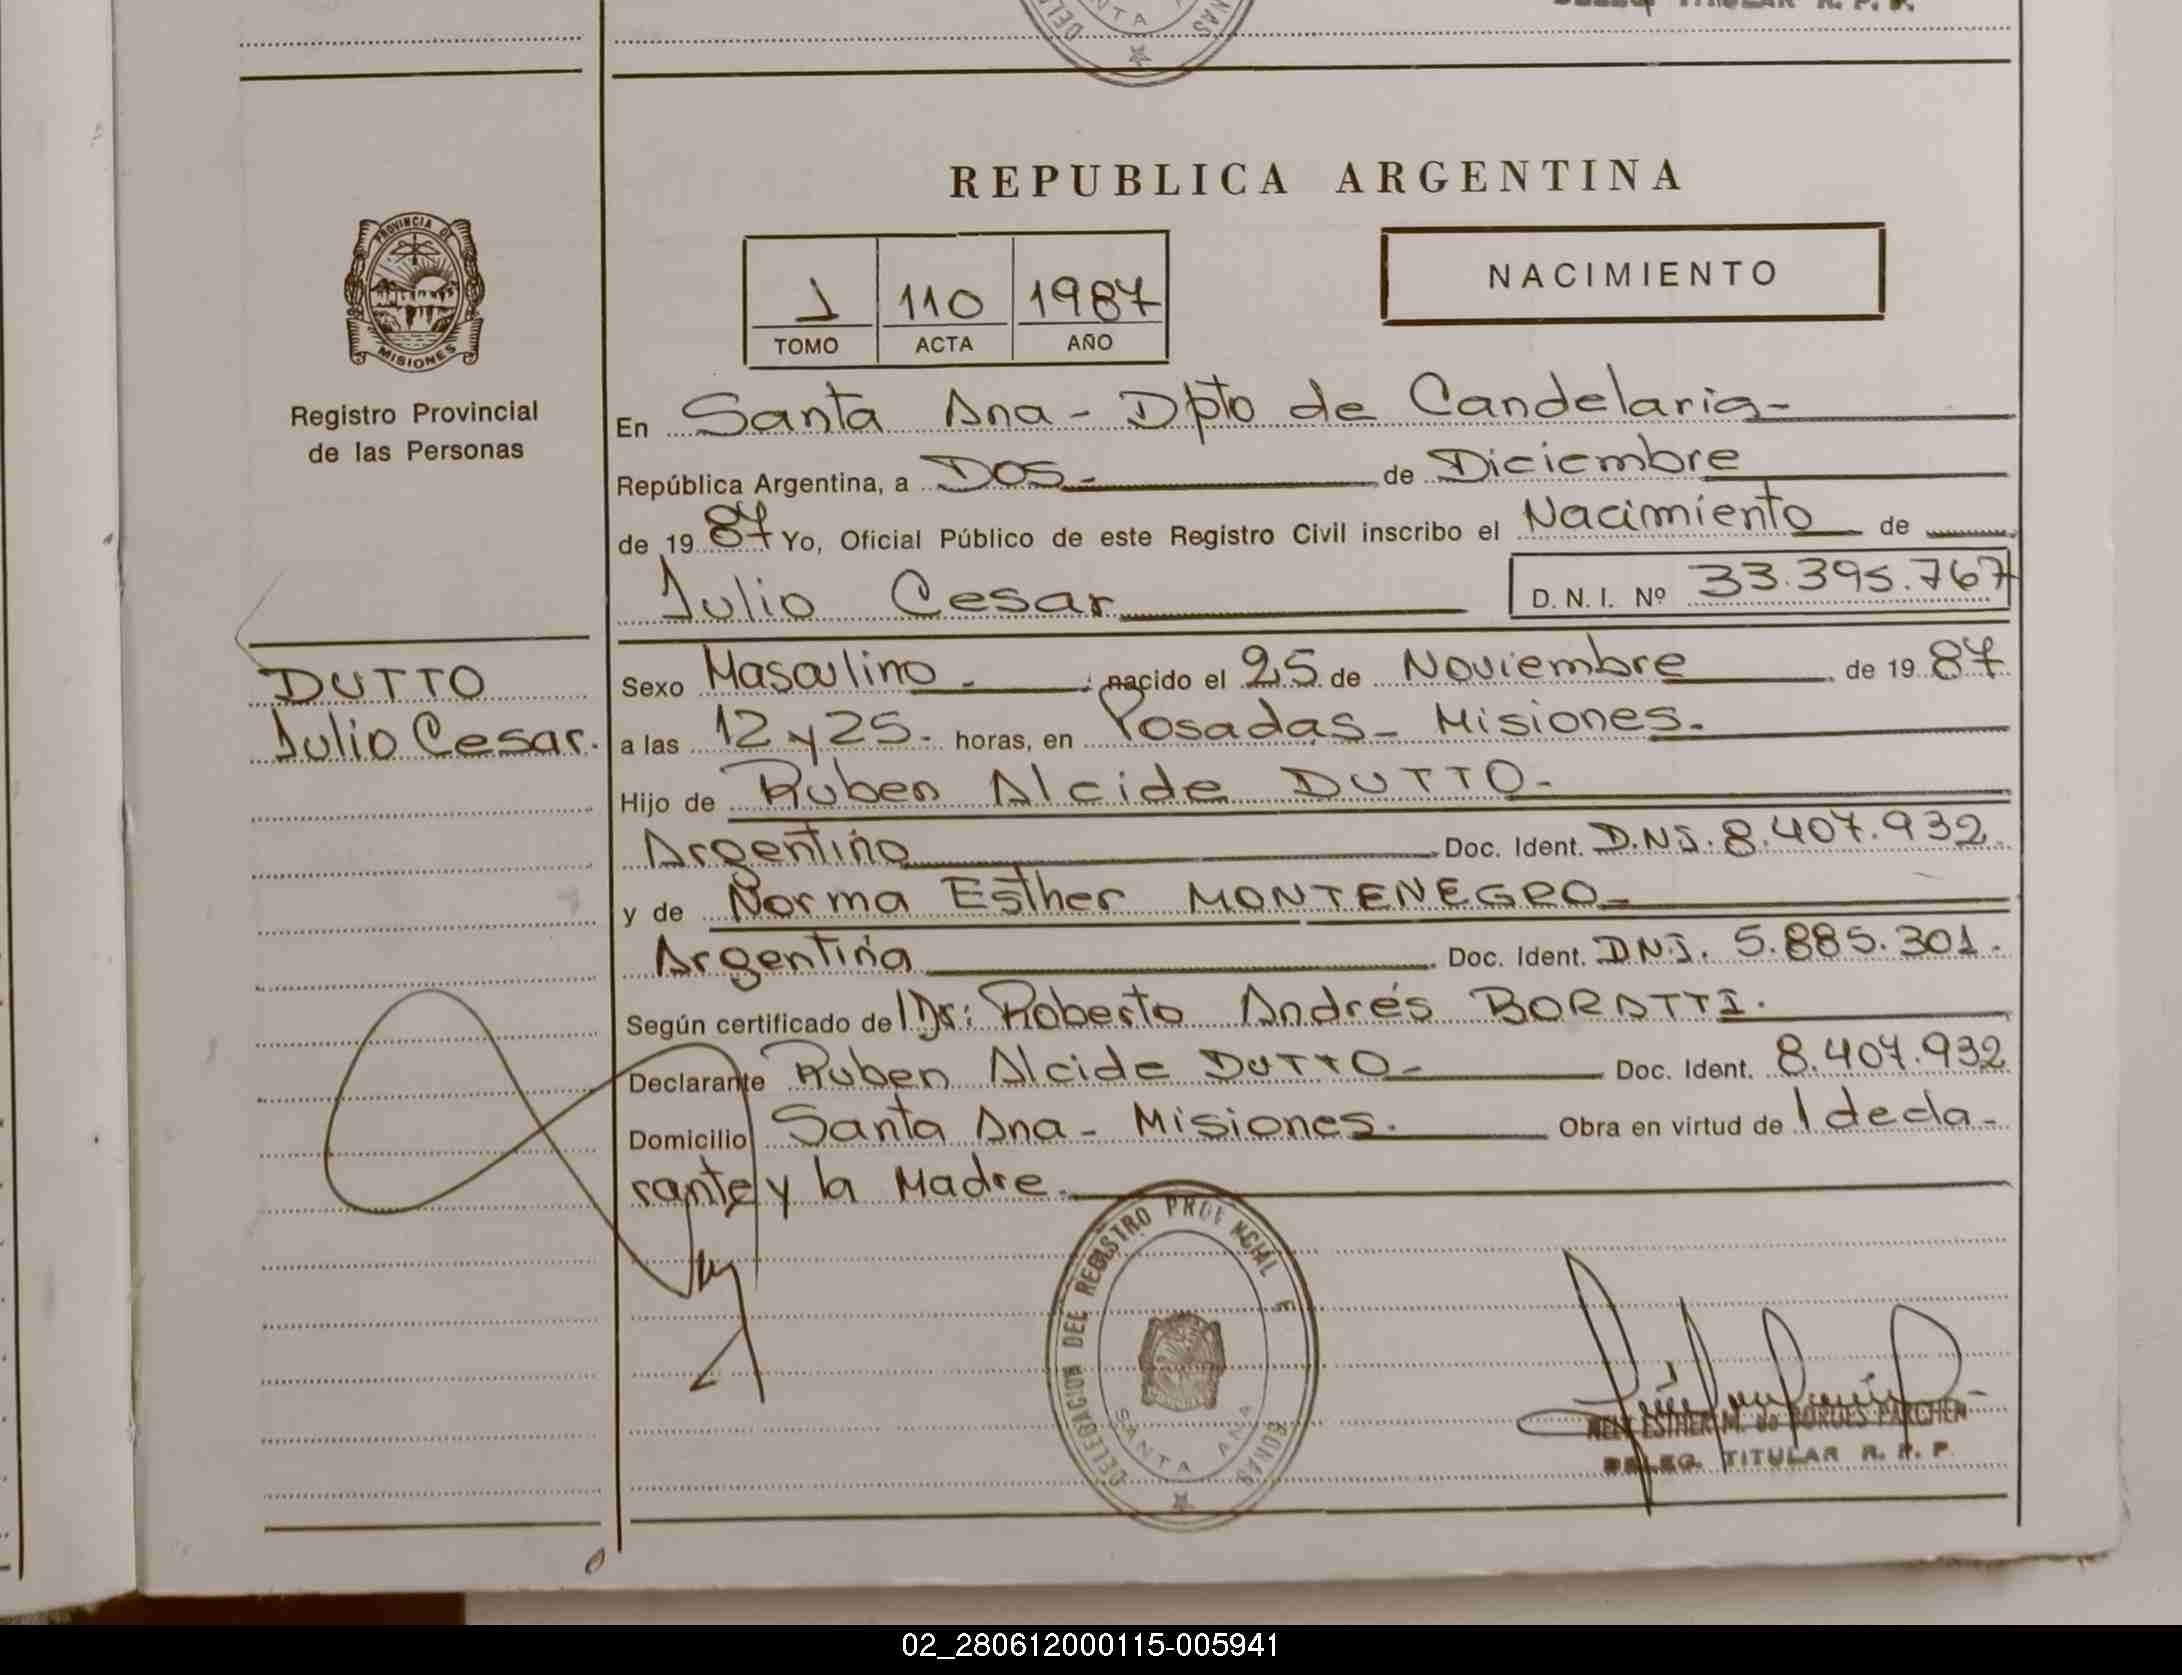 DELEG. TITULAR R. P. P.
REPUBLICA ARGENTINA
PROVINCIA DE
MISIONES
Registro Provincial
de las Personas
1 110 1987
TOMO ACTA AÑO
NACIMIENTO
En Santa Ana - Dpto de Candelaria -
República Argentina, a Dos - de Diciembre
de 1987 Yo, Oficial Público de este Registro Civil inscribo el Nacimiento de
Julio Cesar D. N. I. Nº 33.395.767
DUTTO
Julio Cesar.
Sexo Masculino - ; nacido el 25 de Noviembre de 1987
a las 12 y 25 - horas, en Posadas - Misiones.
Hijo de Ruben Alcide DUTTO -
Argentino Doc. Ident. D.N.I. 8.407.932
y de Norma Esther MONTENEGRO -
Argentina Doc. Ident. D.N.I. 5.885.301.
Según certificado de l Dr: Roberto Andrés BORATTI.
Declarante Ruben Alcide DUTTO - Doc. Ident. 8.407.932
Domicilio Santa Ana - Misiones. Obra en virtud de l decla-
rante y la Madre.
DELEGACION DEL REGISTRO PROVINCIAL
SANTA ANA
ESTHER M. do BORGES PARCHEN
DELEG. TITULAR R. P. P
02_280612000115-005941